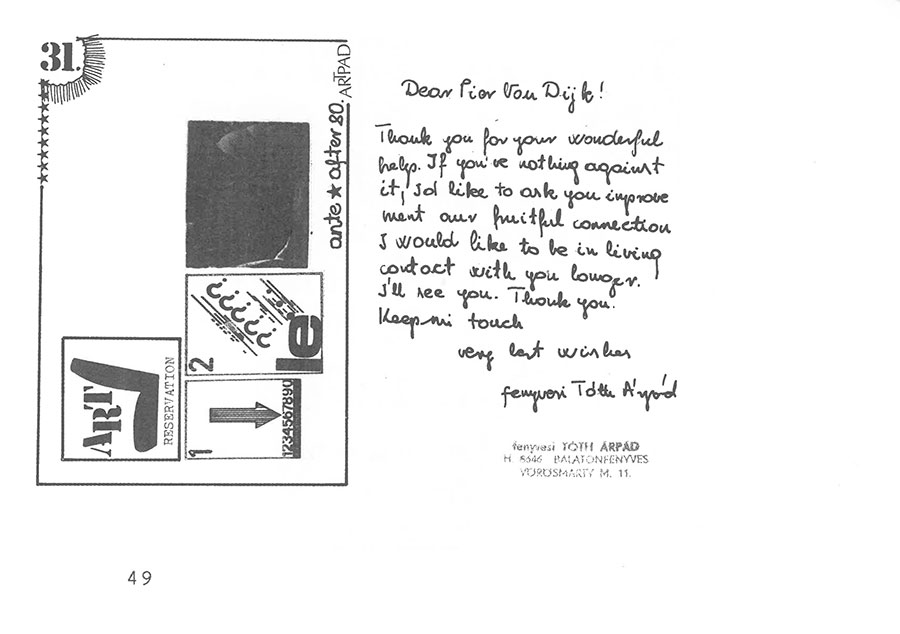 31.
ante ★ after 80. ARTPAD
le
2
1
1234567890
ART
RESERVATION
Dear Pier Van Dijk!
Thank you for your wonderful
help. If you've nothing against
it, I'd like to ask you improve
ment our fruitful connection
I would like to be in living
contact with you longer.
I'll see you. Thank you.
Keep mi touch
very best wishes
fenyvesi Tóth Árpád
fenyvesi TÓTH ÁRPÁD
H. 8646 BALATONFENYVES
VÖRÖSMARTY M. 11.
49